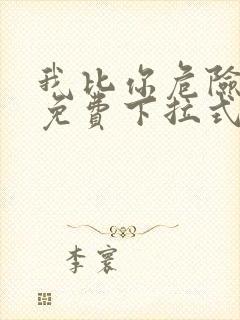 我比你危險
免費下拉式
李寰